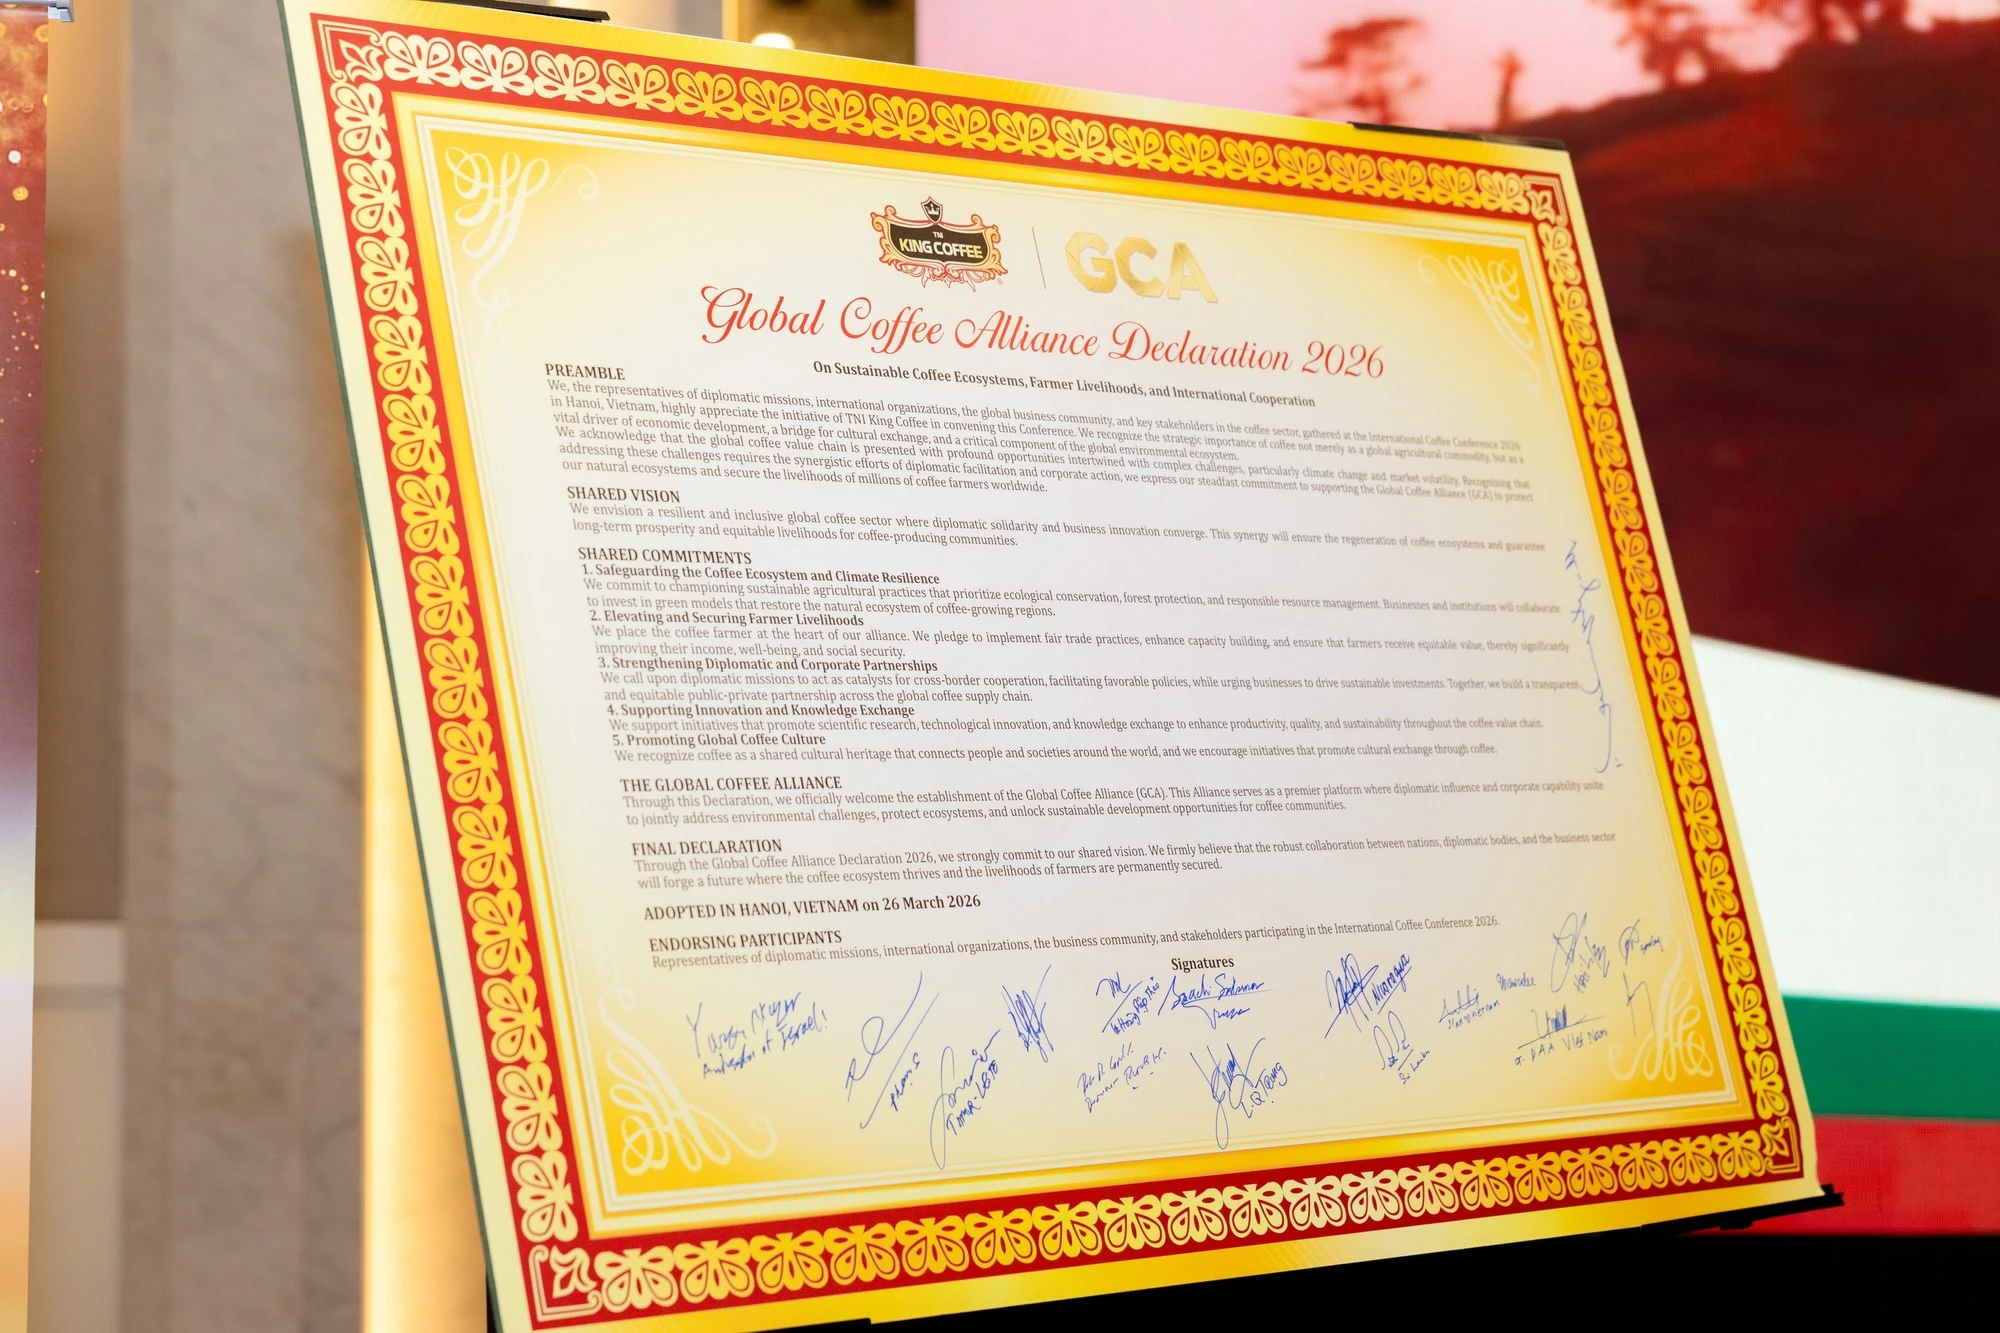 TNI
KING COFFEE
GCA
Global Coffee Alliance Declaration 2026
On Sustainable Coffee Ecosystems, Farmer Livelihoods, and International Cooperation
PREAMBLE
We, the representatives of diplomatic missions, international organizations, the global business community, and key stakeholders in the coffee sector, gathered at the International Coffee Conference 2026
in Hanoi, Vietnam, highly appreciate the initiative of TNI King Coffee in convening this Conference. We recognize the strategic importance of coffee not merely as a global agricultural commodity, but as a
vital driver of economic development, a bridge for cultural exchange, and a critical component of the global environmental ecosystem.
We acknowledge that the global coffee value chain is presented with profound opportunities intertwined with complex challenges, particularly climate change and market volatility. Recognizing that
addressing these challenges requires the synergistic efforts of diplomatic facilitation and corporate action, we express our steadfast commitment to supporting the Global Coffee Alliance (GCA) to protect
our natural ecosystems and secure the livelihoods of millions of coffee farmers worldwide.
SHARED VISION
We envision a resilient and inclusive global coffee sector where diplomatic solidarity and business innovation converge. This synergy will ensure the regeneration of coffee ecosystems and guarantee
long-term prosperity and equitable livelihoods for coffee-producing communities.
SHARED COMMITMENTS
1. Safeguarding the Coffee Ecosystem and Climate Resilience
We commit to championing sustainable agricultural practices that prioritize ecological conservation, forest protection, and responsible resource management. Businesses and institutions will collaborate
to invest in green models that restore the natural ecosystem of coffee-growing regions.
2. Elevating and Securing Farmer Livelihoods
We place the coffee farmer at the heart of our alliance. We pledge to implement fair trade practices, enhance capacity building, and ensure that farmers receive equitable value, thereby significantly
improving their income, well-being, and social security.
3. Strengthening Diplomatic and Corporate Partnerships
We call upon diplomatic missions to act as catalysts for cross-border cooperation, facilitating favorable policies, while urging businesses to drive sustainable investments. Together, we build a transparent
and equitable public-private partnership across the global coffee supply chain.
4. Supporting Innovation and Knowledge Exchange
We support initiatives that promote scientific research, technological innovation, and knowledge exchange to enhance productivity, quality, and sustainability throughout the coffee value chain.
5. Promoting Global Coffee Culture
We recognize coffee as a shared cultural heritage that connects people and societies around the world, and we encourage initiatives that promote cultural exchange through coffee.
THE GLOBAL COFFEE ALLIANCE
Through this Declaration, we officially welcome the establishment of the Global Coffee Alliance (GCA). This Alliance serves as a premier platform where diplomatic influence and corporate capability unite
to jointly address environmental challenges, protect ecosystems, and unlock sustainable development opportunities for coffee communities.
FINAL DECLARATION
Through the Global Coffee Alliance Declaration 2026, we strongly commit to our shared vision. We firmly believe that the robust collaboration between nations, diplomatic bodies, and the business sector
will forge a future where the coffee ecosystem thrives and the livelihoods of farmers are permanently secured.
ADOPTED IN HANOI, VIETNAM on 26 March 2026
ENDORSING PARTICIPANTS
Representatives of diplomatic missions, international organizations, the business community, and stakeholders participating in the International Coffee Conference 2026.
Signatures
Ambassador of Israel!
TIMOR-LESTE
Nicaragua
Sri Lanka
VIET NAM